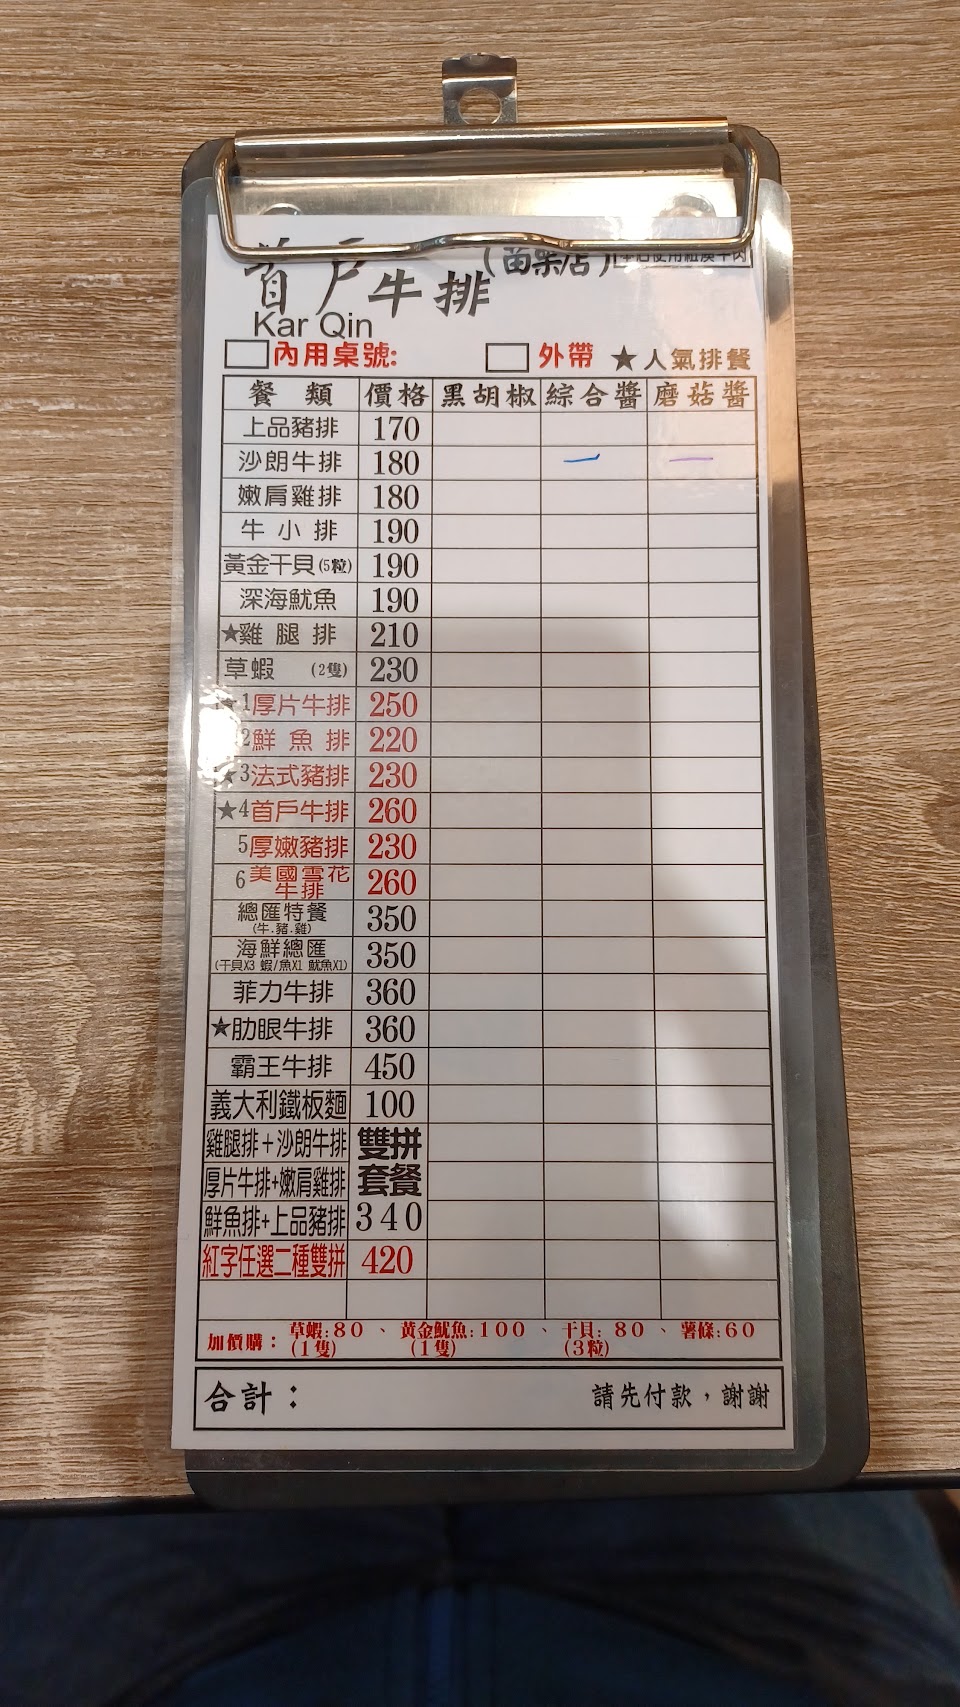 首戶牛排
(苗栗店)
Kar Qin
內用桌號:
外帶 ★人氣排餐
餐類 價格 黑胡椒 綜合醬 磨菇醬
上品豬排 170
沙朗牛排 180 一 一
嫩肩雞排 180
牛小排 190
黃金干貝(5粒) 190
深海魷魚 190
★雞腿排 210
草蝦 (2隻) 230
★1厚片牛排 250
2鮮魚排 220
★3法式豬排 230
★4首戶牛排 260
5厚嫩豬排 230
6美國雪花牛排 260
總匯特餐 350
(牛.豬.雞)
海鮮總匯 350
(干貝X3 蝦/魚X1 魷魚X1)
菲力牛排 360
★肋眼牛排 360
霸王牛排 450
義大利鐵板麵 100
雞腿排+沙朗牛排 雙拼
厚片牛排+嫩肩雞排 套餐
鮮魚排+上品豬排 340
紅字任選二種雙拼 420
加價購: 草蝦:80、黃金魷魚:100、干貝:80、薯條:60
(1隻) (1隻) (3粒)
合計: 請先付款,謝謝